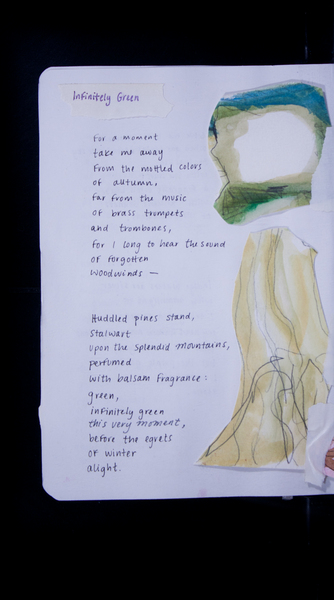 Infinitely Green
for a moment
take me away
from the mottled colors
of autumn,
far from the music
of brass trumpets
and trombones,
for I long to hear the sound
of forgotten
woodwinds —
Huddled pines stand,
stalwart
upon the splendid mountains,
perfumed
with balsam fragrance:
green,
infinitely green
this very moment,
before the egrets
of winter
alight.